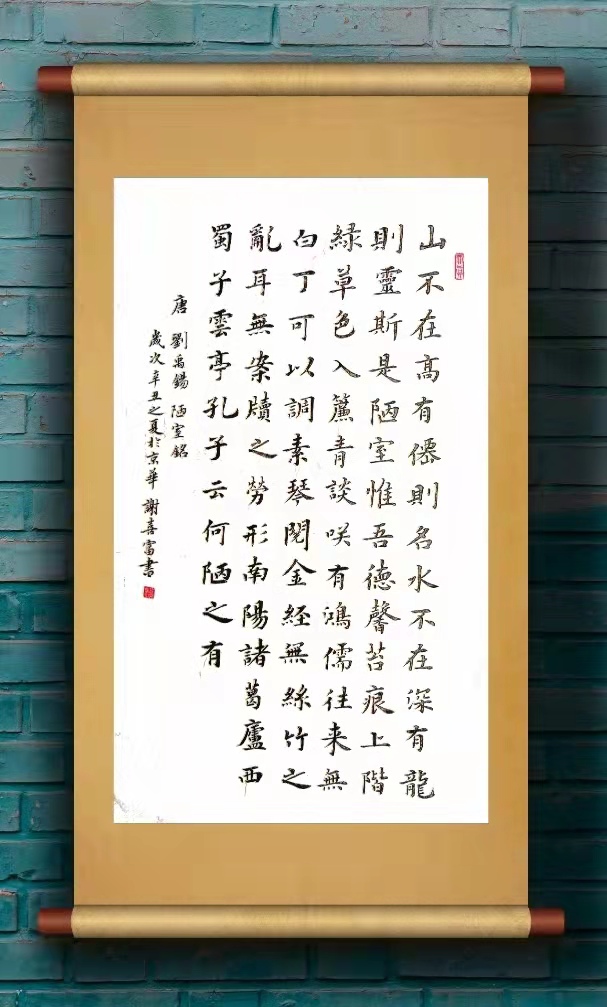 山不在髙有僊則名水不在深有龍
則靈斯是陋室惟吾德馨苔痕上階
緑草色入簾青談咲有鴻儒往来無
白丁可以調素琴閲金経無絲竹之
亂耳無案牘之勞形南陽諸葛廬西
蜀子雲亭孔子云何陋之有
唐 劉禹錫 陋室銘
歲次辛丑之夏於京華 謝喜富書